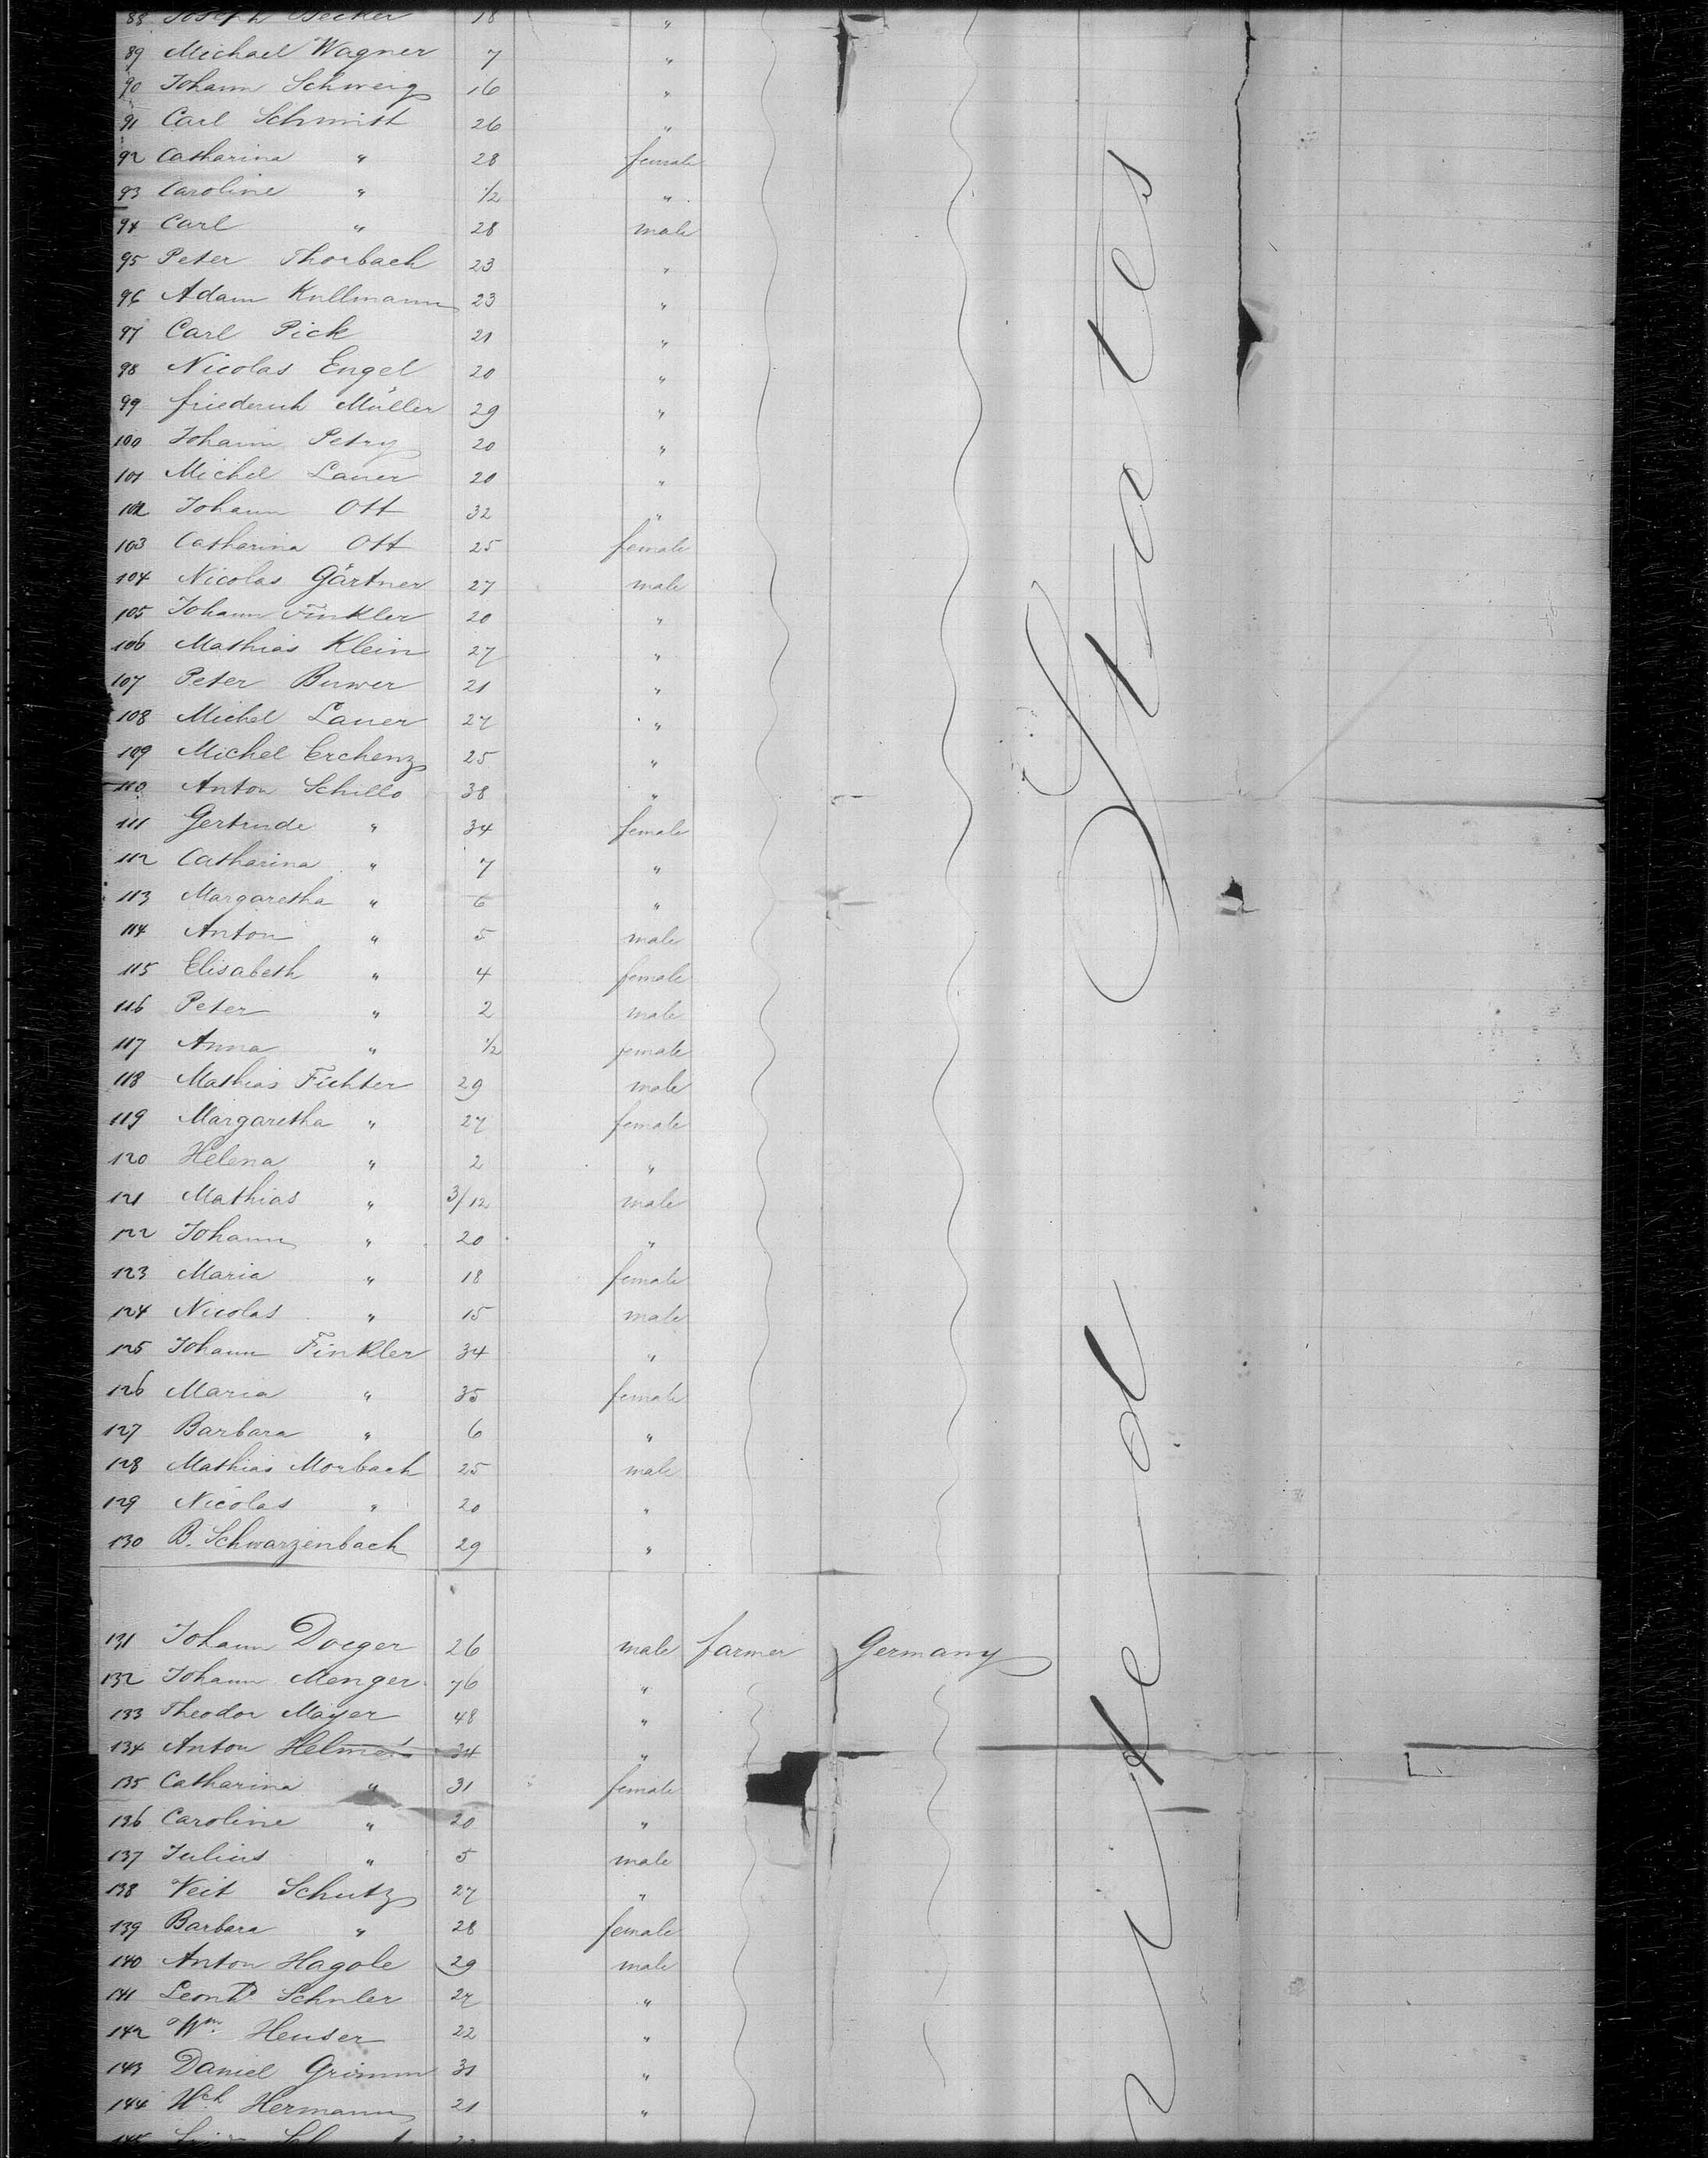 88 Joseph Becker 18 "
89 Michael Wagner 7 "
90 Johann Schweig 16 "
91 Carl Schmidt 26 "
92 Catharina " 28 female
93 Caroline " 1/2 "
94 Carl " 28 male
95 Peter Thorbach 23 "
96 Adam Kullmann 23 "
97 Carl Pick 21 "
98 Nicolas Engel 20 "
99 Friederich Müller 29 "
100 Johann Petry 20 "
101 Michel Lauer 20 "
102 Johann Ott 32 "
103 Catharina Ott 25 female
104 Nicolas Gärtner 27 male
105 Johann Finkler 20 "
106 Mathias Klein 27 "
107 Peter Buwer 21 "
108 Michel Lauer 27 "
109 Michel Erchenz 25 "
110 Anton Schillo 38 "
111 Gertrude " 34 female
112 Catharina " 7 "
113 Margaretha " 6 "
114 Anton " 5 male
115 Elisabeth " 4 female
116 Peter " 2 male
117 Anna " 1/2 female
118 Mathias Fichter 29 male
119 Margaretha " 27 female
120 Helena " 2 "
121 Mathias " 3/12 male
122 Johann " 20 "
123 Maria " 18 female
124 Nicolas " 15 male
125 Johann Finkler 34 "
126 Maria " 35 female
127 Barbara " 6 "
128 Mathias Morbach 25 male
129 Nicolas " 20 "
130 B. Schwarzenbach 29 "
131 Johann Doeger 26 male farmer Germany
132 Johann Menger 76 "
133 Theodor Mayer 48 "
134 Anton 34 "
135 Catharina " 31 female
136 Caroline " 20 "
137 Julius " 5 male
138 Veit Schutz 27 "
139 Barbara " 28 female
140 Anton Hagole 29 male
141 Leonh Schuler 27 "
142 Wm. Heuser 22 "
143 Daniel Grimm 31 "
144 Hch Hermann 21 "
145
United States